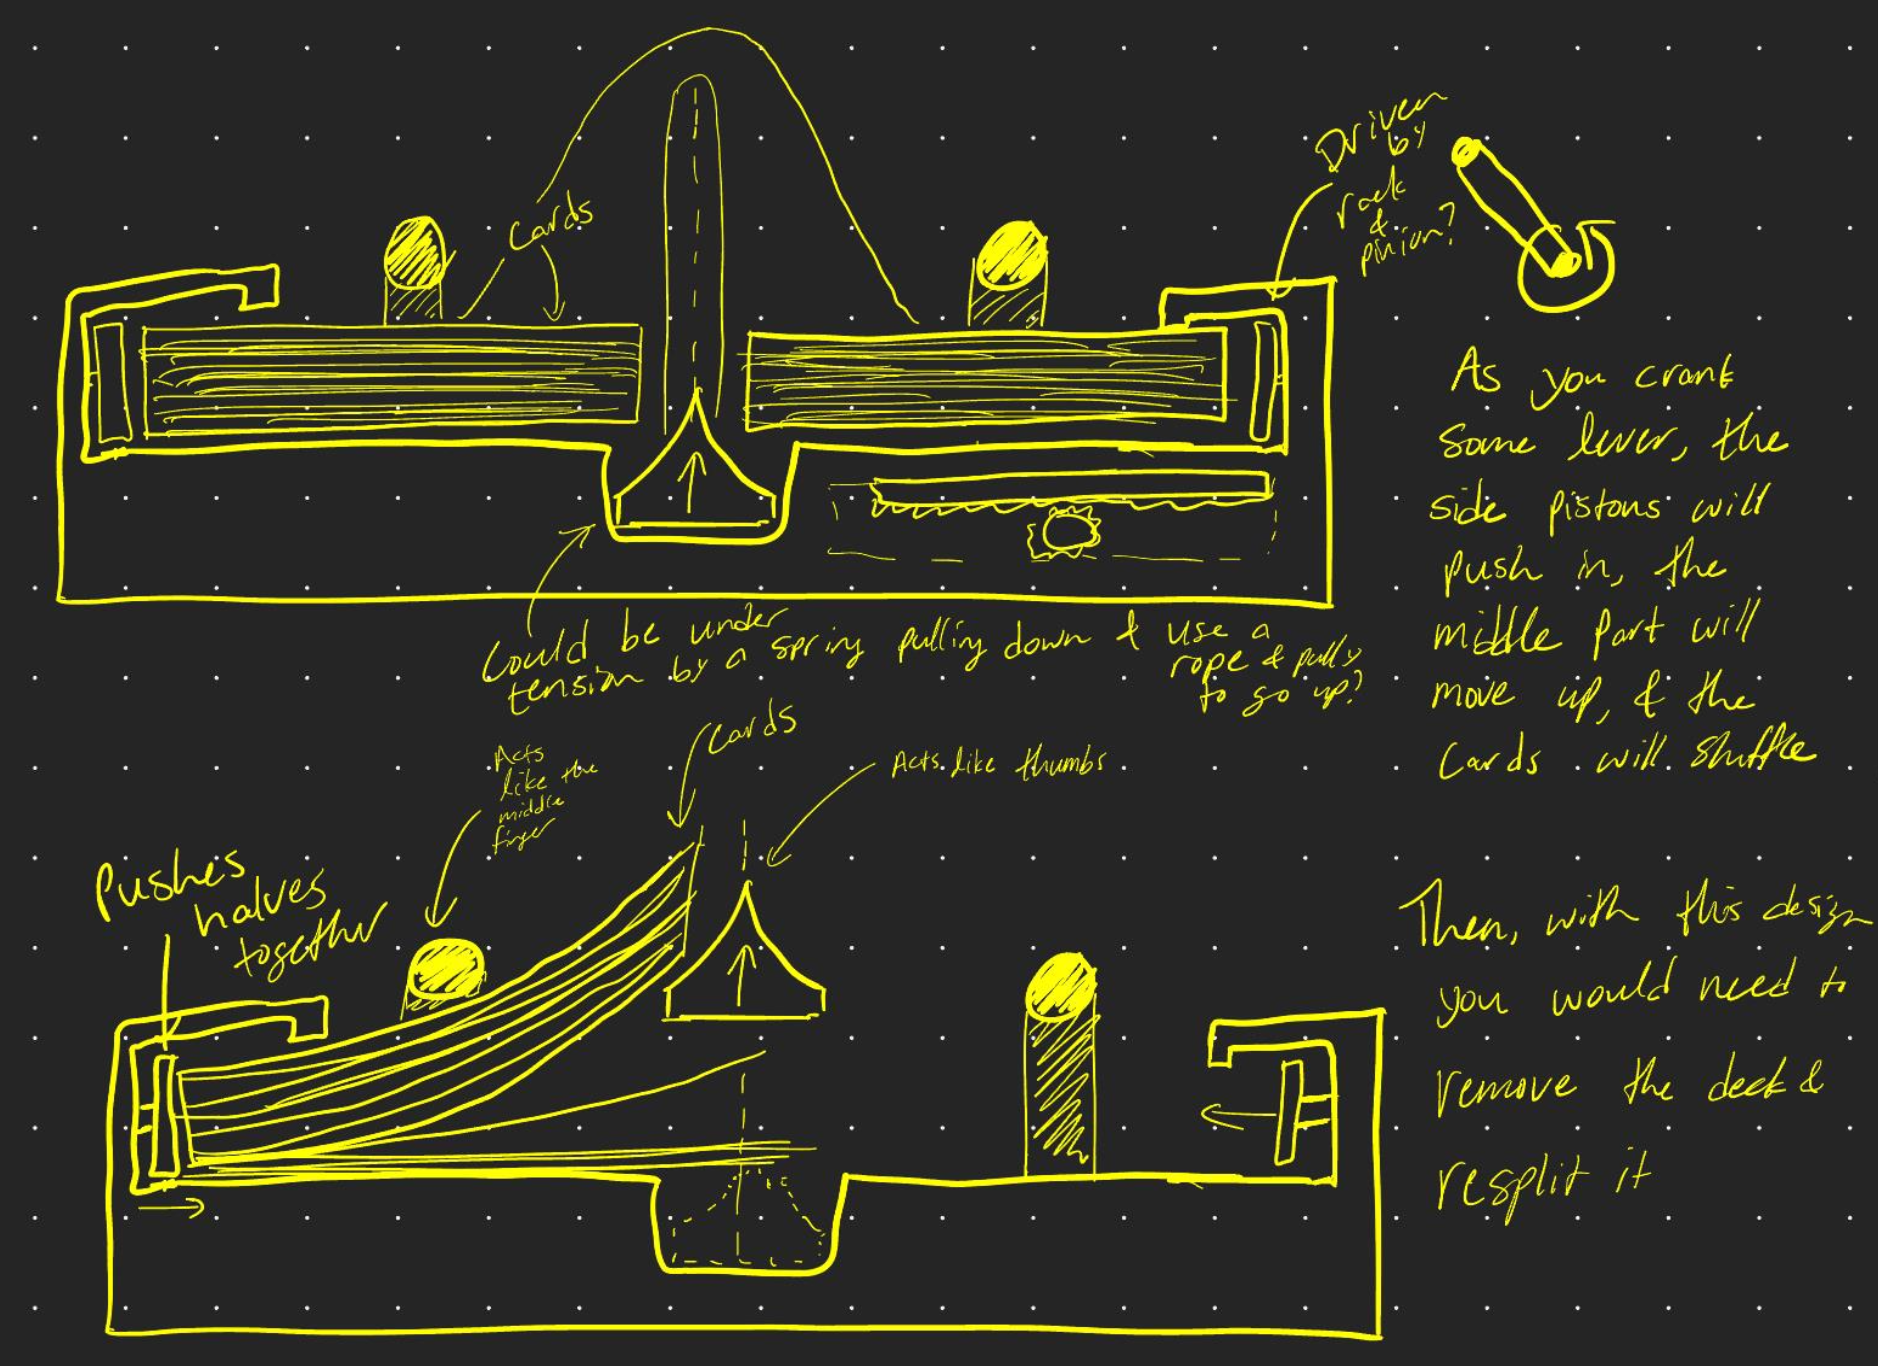 Cards
Driven
by
rack
&
pinion?
As you crank
some lever, the
side pistons will
push in, the
middle part will
move up, & the
cards will shuffle
Could be under
tension by a spring pulling down & use a
rope & pully
to go up?
Acts
like the
middle
finger
Cards
Acts like thumbs
Pushes
halves
together
Then, with this design
you would need to
remove the deck &
resplit it